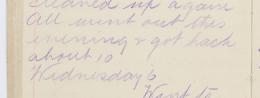 cleaned up again
All went out this
evening & got back
about 10
Wednesday 6
Went to